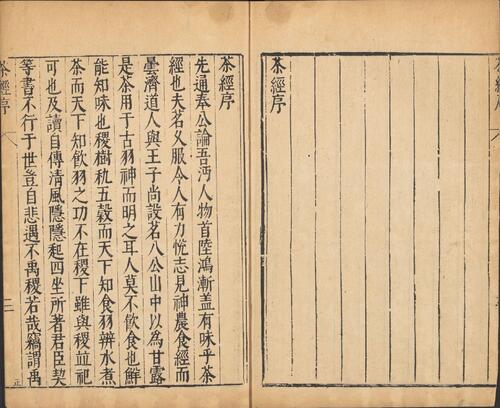 茶經序
茶經序
先通奉公論吾沔人物首陸鴻漸盖有味乎茶
經也夫茗乆服令人有力悅志見神農食經而
曇濟道人與王子尚設茗八公山中以為甘露
是茶用于古羽神而明之耳人莫不飲食也鮮
能知味也稷樹秇五穀而天下知食羽辨水煮
茶而天下知飲羽之功不在稷下雖與稷並祀
可也及讀自傳清風隱隱起四坐所著君臣契
等書不行于世豈自悲遇不禹稷若哉竊謂禹
茶經序
二